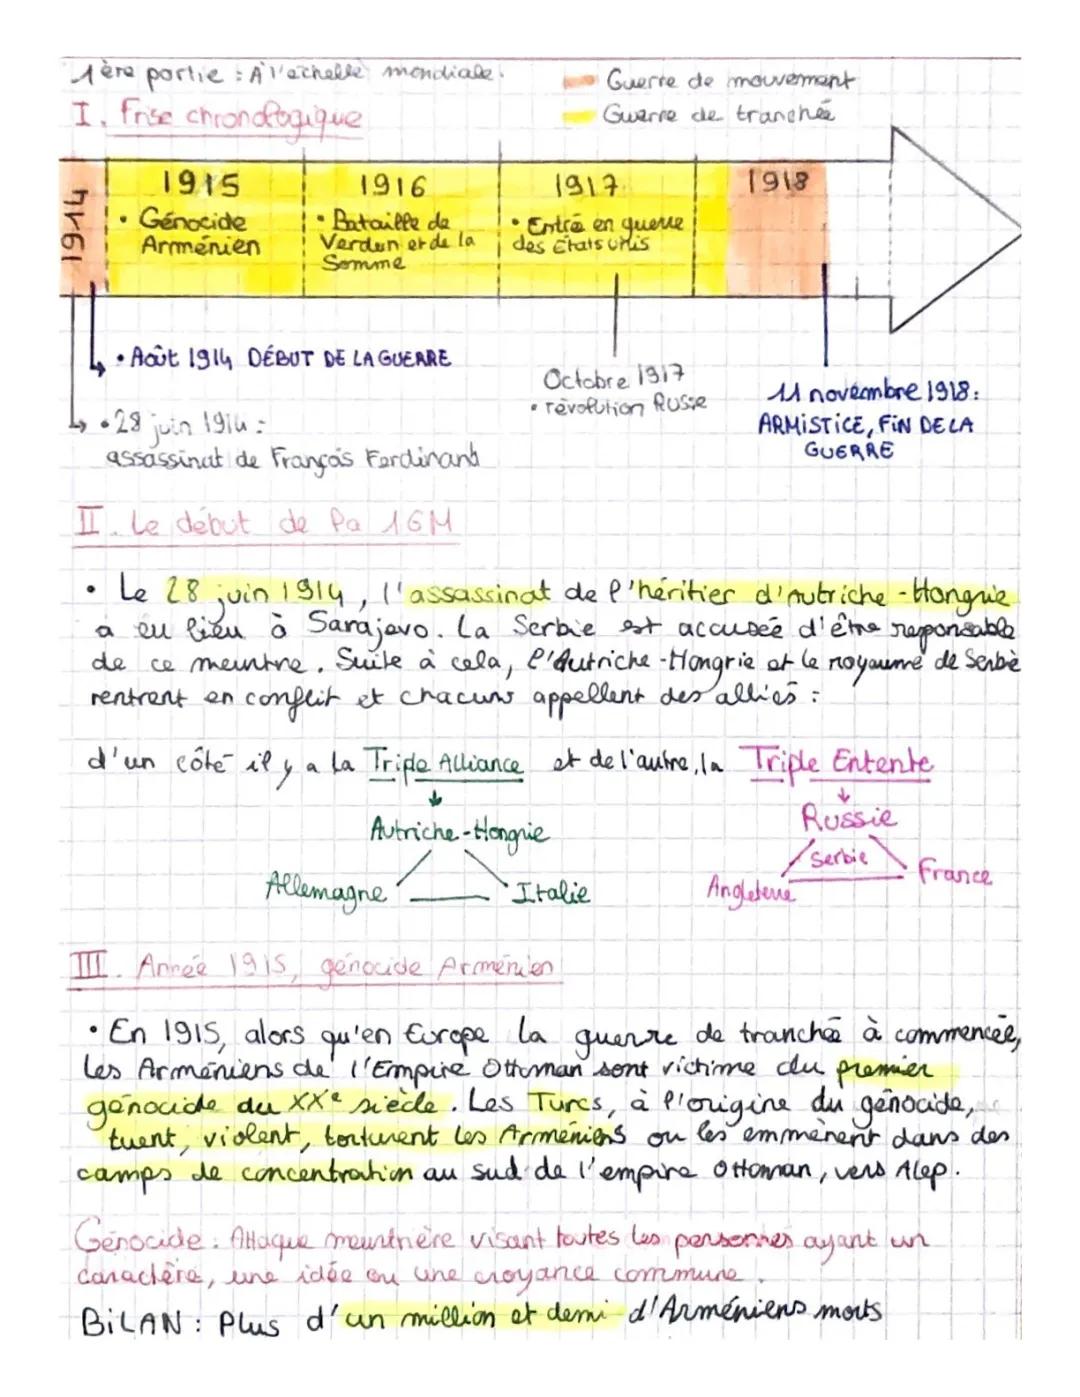 1ère partie : A l'échelle mondiale.
Guerre de mouvement
I. Frise chronologique
Guerre de tranchée
1914
1915
• Génocide
Arménien
1916
• Bataille de
Verdun et de la
Somme
1917
• Entrée en guerre
des États unis
1918
• Août 1914 DÉBUT DE LA GUERRE
Octobre 1917
• révolution Russie
11 novembre 1918:
ARMISTICE, FIN DE LA
GUERRE
• 28 juin 1914 :
assassinat de François Ferdinand
II. Le début de la 1GM
• Le 28 juin 1914, l'assassinat de l'héritier d'Autriche-Hongrie
a eu lieu à Sarajevo. La Serbie est accusée d'être responsable
de ce meurtre. Suite à cela, l'Autriche-Hongrie et le royaume de Serbie
rentrent en conflit et chacuns appellent des alliés :
d'un côté il y a la Triple Alliance et de l'autre, la Triple Entente
Autriche-Hongrie
Allemagne
Italie
Russie
Serbie
Angleterre
France
III. Année 1915, génocide Arménien
• En 1915, alors qu'en Europe la guerre de tranchée à commencée,
les Arméniens de l'Empire Ottoman sont victime du premier
génocide du XXe siècle. Les Turcs, à l'origine du génocide,
tuent, violent, torturent les Arméniens ou les emmènent dans des
camps de concentration au sud de l'empire Ottoman, vers Alep.
Génocide : Attaque meurtrière visant toutes les personnes ayant un
caractère, une idée ou une croyance commune.
BILAN : Plus d'un million et demi d'Arméniens morts